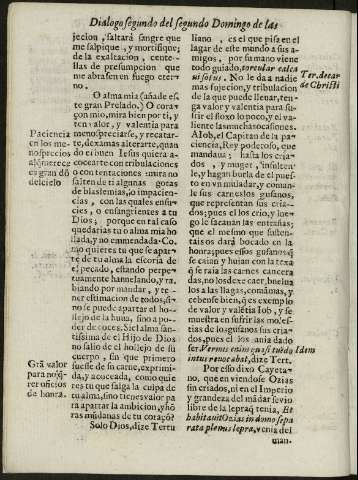 Dialogo segundo del segundo Domingo de las
jecion, saltarà sangre que
me salpique, y mortifique;
de la exaltacion, cente-
llas de presumpcion que
me abrasen en fuego eter-
no.
O alma mia (añade es-
te gran Prelado.) O cora-
çon mio, mira bien por ti, y
ten valor, y valentia para
menospreciarse, y recatar-
te, dexamas alterarte, quan
do te honren Iesus quiera a-
cocearte con tribulaciones
o con tentaciones: mira no
salten de ti algunas gotas
de blasfemias, o impacien-
cias, con las quales ensu-
cies, o ensangrientes a tu
Dios; porque en tal caso
quedarias tu o alma mia ho
llada, y no enmendada. Co-
mo quieres tu que se apar-
te de tu alma la escoria de
el pecado, estando perpe-
tuamente hannelando, y ra-
biando por mandar, y te-
ner estimacion de todos, si
no se puede apartar el ho-
llejo de la huua, sino a po-
der de coces. Si el alma san-
tissima de el Hijo de Dios
no salio de el hollejo de su
cuerpo, sin que primero
fuesse de su carne, exprimi-
da, y acoceada, como quie
res tu que salga la culpa de
tu alma, sino tienes valor pa
ra apartar la ambicion, y hõ
ras mūdanas de tu coraçõ?
Solo Dios, dize Tertu
Paciencia
en los me-
nosprecios
merece
es gran dõ
del cielo
Grã valor
para no q̃-
rer oficios
de honra.
liano, es el que pisa en el
lagar de este mundo a sus a-
migos, por su mano viene
todo guiado, torcular calca
ui solus. No le da a nadie
mas sujecion, y tribulacion
de la que puede lleuar, ten-
ga valor y valentia para su-
frir el floxo lo poco, y el va-
liente las muchas ocasiones.
A Iob, el Capitan de la pa-
ciencia, Rey poderoso, que
mandaua; hasta los cria-
dos, y muger, insulten-
le, y hagan burla de el pues-
to en vn muladar, y coman-
le sus carnes los gusanos,
que representan sus cria-
dos; pues el los crio, y lue-
go le sacaron las entrañas;
que el mesmo que susten-
tais os darà bocado en la
honra; pues essos gusanos q̃
se caian y huian con la texa
q̃ se raia las carnes cancera
das, no los dexe caer, buelua
los a las llagas, comãmas, y
cebense bien, q̃ es exemplo
de valor y valẽtia Iob, y se
muestra en sufrir las moles-
tias de los gusanos sus cria-
dos, pues el los auia dado
ser. Vermes enim quasi tuẽdo
intus reuocabat, dize Tert.
Por esso dixo Cayeta-
no, que en viendose Ozias
sin criados, ni en el Imperio
y grandeza del mãdar se vio
libre de la lepra q̃ tenia, Et
habitauit Ozias in domo sepa
rata plenus lepra, venia del
man-
Ter. de car
de Christi
Idem